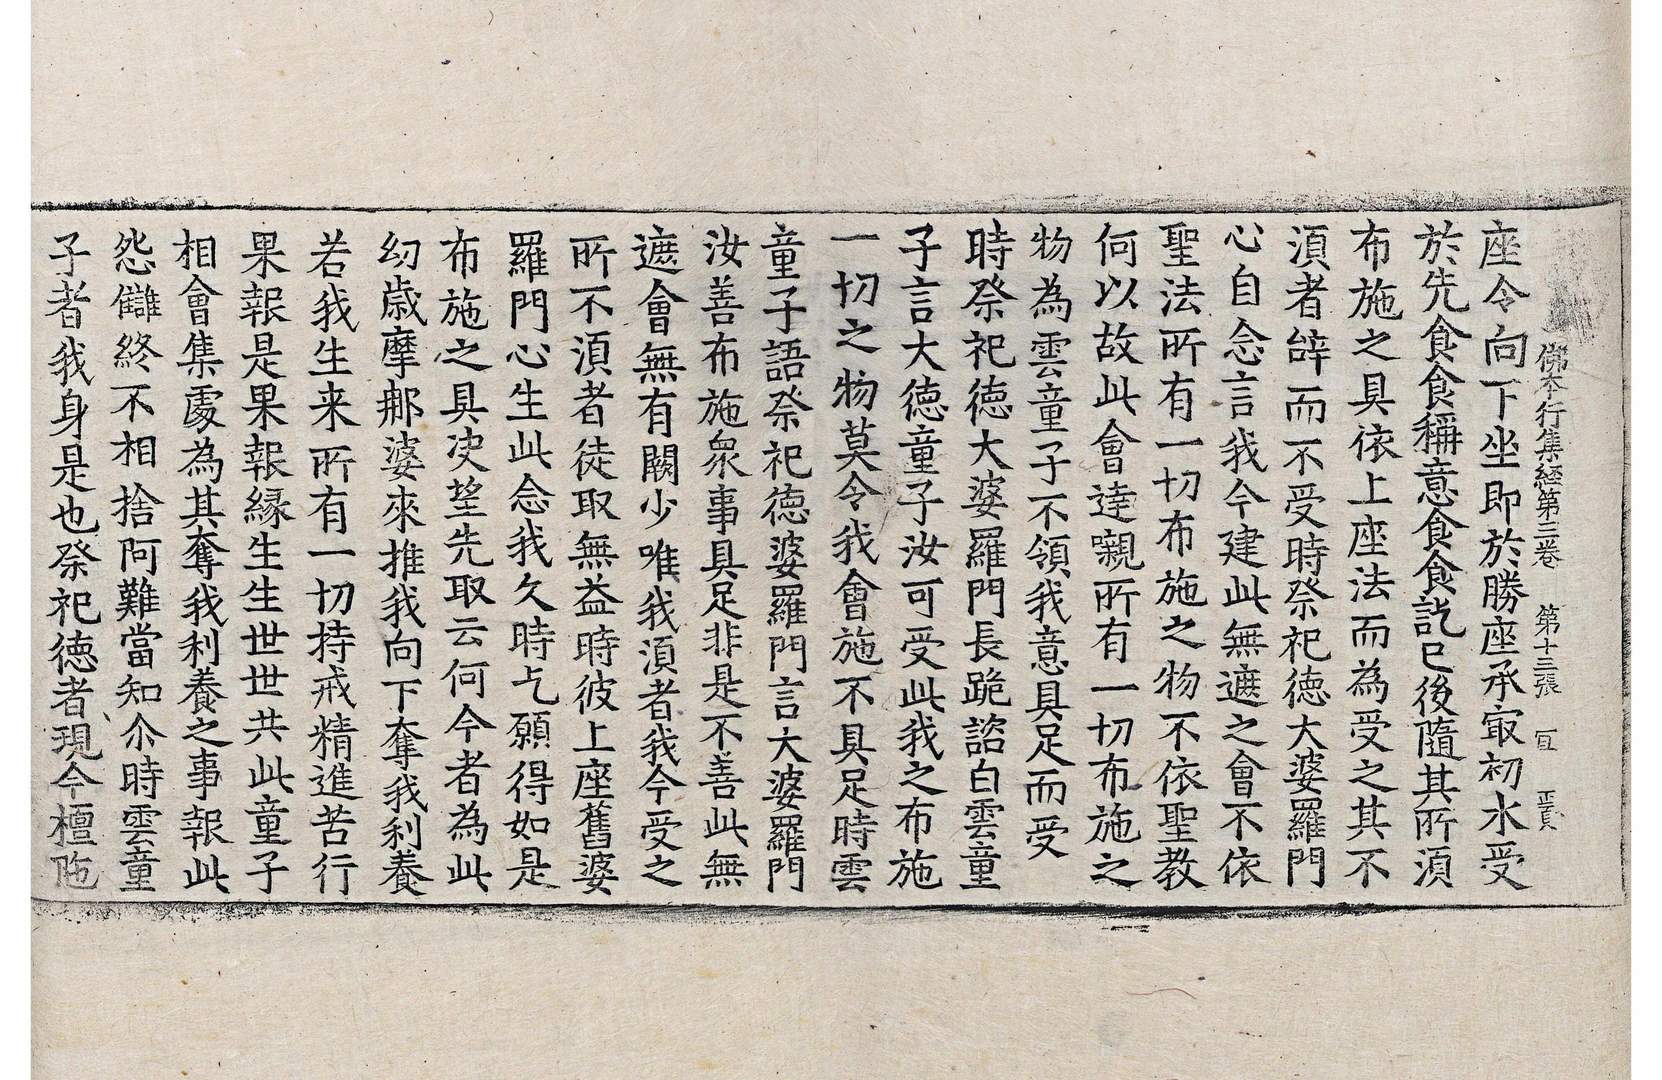 佛本行集經第三卷 第十三張 冝
座令向下坐即於勝座承㝡初水受
於先食食稱意食食訖已後隨其所湏
布施之具依上座法而為受之其不
湏者辝而不受時祭祀徳大婆羅門
心自念言我今建此無遮之會不依
聖法所有一切布施之物不依聖教
何以故此會達嚫所有一切布施之
物為雲童子不領我意具足而受
時祭祀徳大婆羅門長跪諮白雲童
子言大徳童子汝可受此我之布施
一切之物莫令我會施不具足時雲
童子語祭祀徳婆羅門言大婆羅門
汝善布施衆事具足非是不善此無
遮會無有闕少唯我湏者我今受之
所不湏者徒取無益時彼上座舊婆
羅門心生此念我久時乞願得如是
布施之具决望先取云何今者為此
幼歳摩那婆來推我向下奪我利養
若我生来所有一切持戒精進苦行
果報是果報縁生生世世共此童子
相會集處為其奪我利養之事報此
怨讎終不相捨阿難當知尒時雲童
子者我身是也祭祀徳者現今檀陁